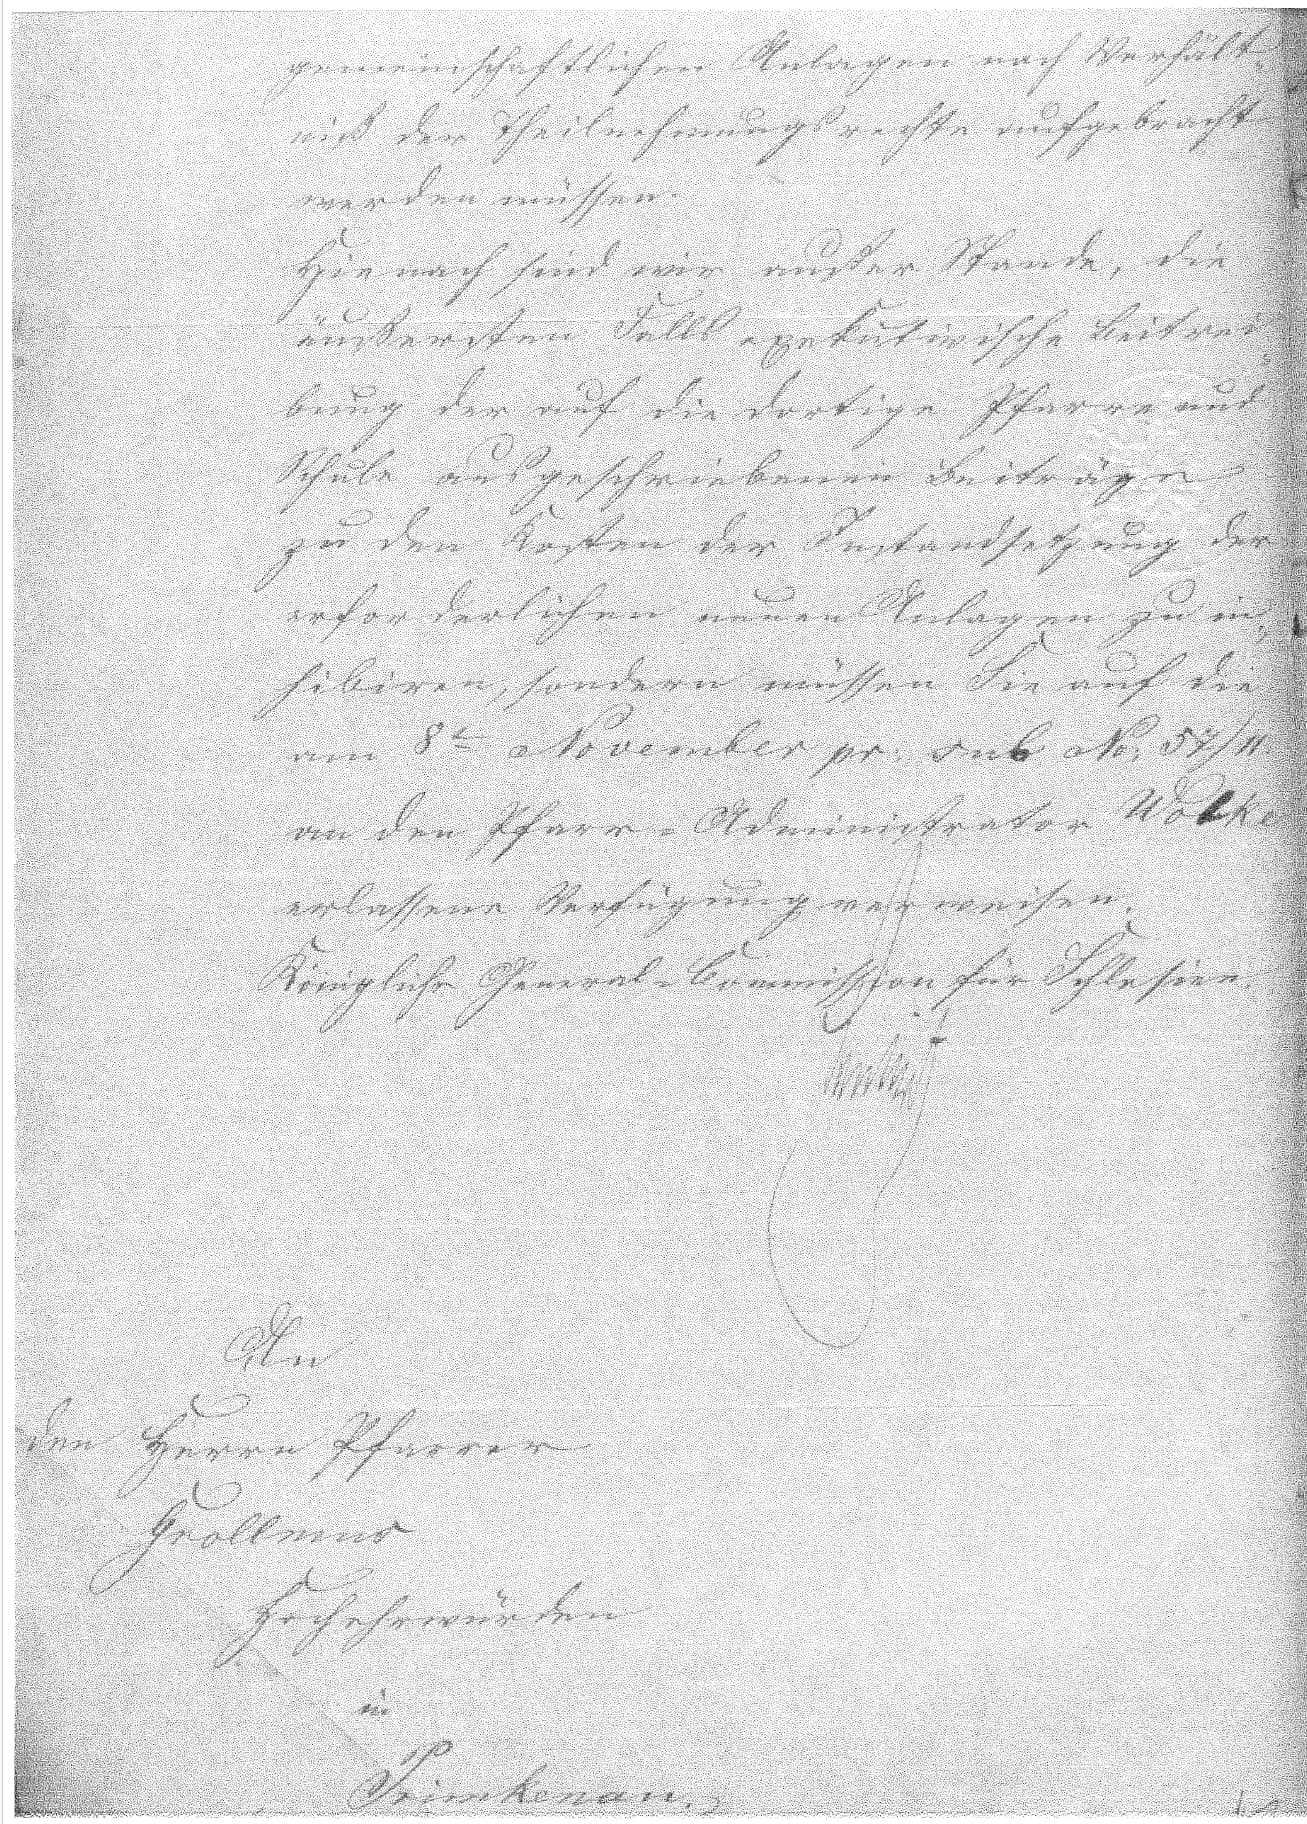 gemeinschaftlichen Anlagen nach Verhält-
niß der Theilnehmungsrechte aufgebracht
werden müssen.
Hienach sind wir außer Stande, die
äußersten Falls exekutivische Beitrei-
bung der auf die dortige Pfarre und
Schule ausgeschriebenen Beiträge
zu den Kosten der Instandsetzung der
erforderlichen neuen Anlagen zu in-
hibiren, sondern müssen Sie auf die
am 8ten November pr. sub No. 57/11.
an den Pfarr-Administrator Wolke
erlassene Verfügung verweisen.
Königliche General-Commission für Schlesien.
An
den Herrn Pfarrer
Grollmus
Hochehrwürden
in
Primkenau.